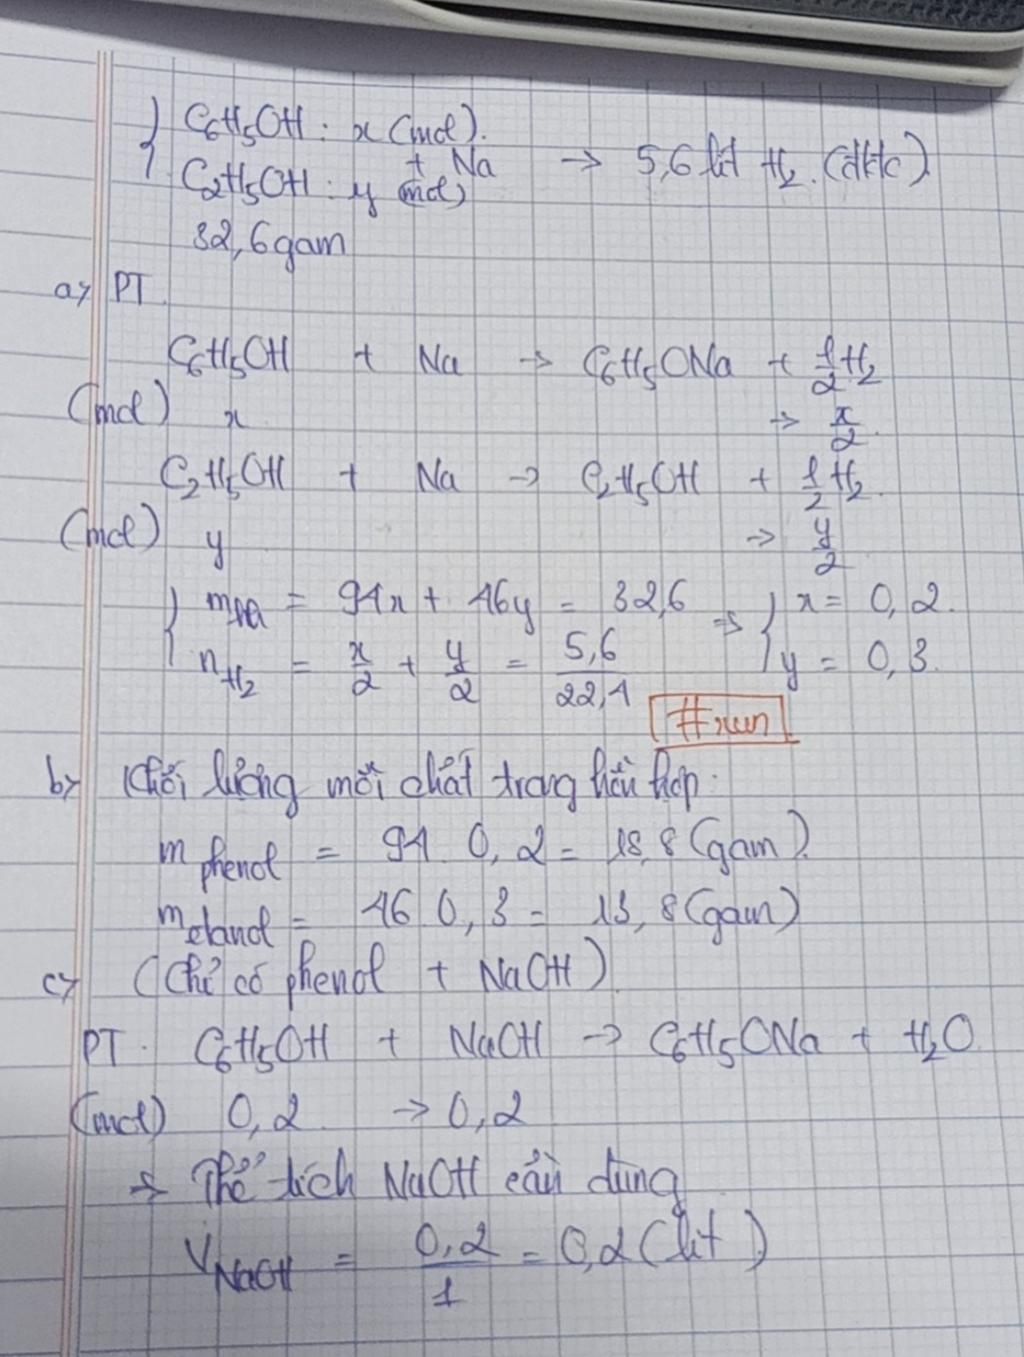 C₆H₅OH : x (mol).
+ Na → 5,6 lít H₂. (đktc)
C₂H₅OH : y (mol)
32,6 gam
a) PT
C₆H₅OH + Na → C₆H₅ONa + 1/2 H₂
(mol) x → x/2
C₂H₅OH + Na → C₂H₅OH + 1/2 H₂.
(mol) y → y/2
= 94x + 46y = 32,6 ⇒ { x = 0,2.
n H₂ = x/2 + y/2 = 5,6/22,4 y = 0,3.
#xun
b) Khối lượng mỗi chất trong hỗn hợp:
m phenol = 94. 0,2 = 18,8 (gam).
m etanol = 46. 0,3 = 13,8 (gam)
c) (Chỉ có phenol + NaOH)
PT. C₆H₅OH + NaOH → C₆H₅ONa + H₂O
(mol) 0,2 → 0,2
⇒ Thể tích NaOH cần dùng
V NaOH = 0,2/1 = 0,2 (lít)